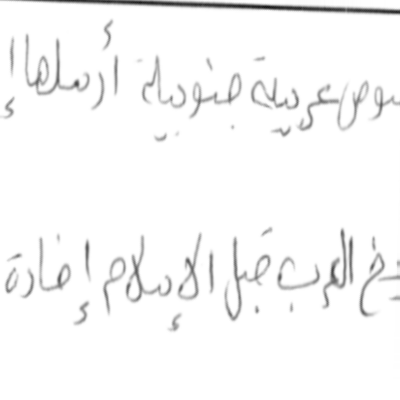 نصوص عربية جنوبية أرسلها إ
يخ العرب قبل الإسلام إفادة